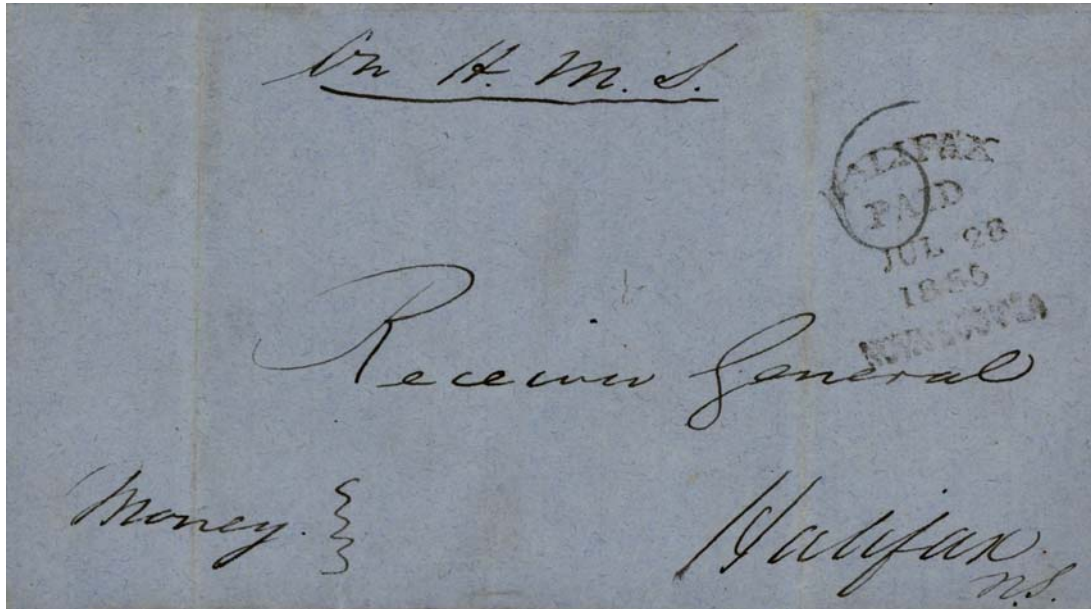 On H. M. S.
HALIFAX
PAID
JUL 28
1856
NOVA SCOTIA
Receiver General
Money.
Halifax.
N.S.